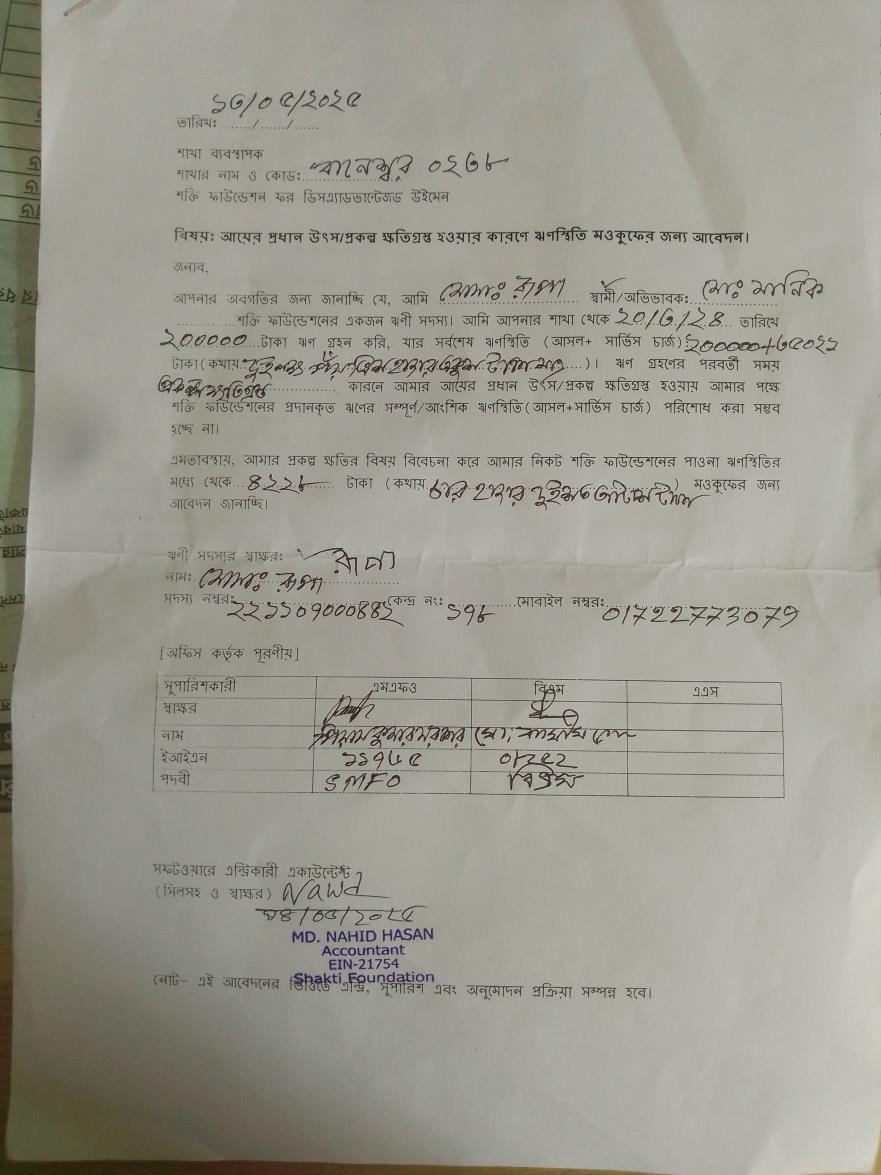 ১৩/০৫/২০২৫
তারিখ: ....../....../......
শাখা ব্যবস্থাপক
শাখার নাম ও কোড: বানেশ্বর ০২৩৮
শক্তি ফাউন্ডেশন ফর ডিসএ্যাডভান্টেজড উইমেন
বিষয়: আয়ের প্রধান উৎস/প্রকল্প ক্ষতিগ্রস্ত হওয়ার কারণে ঋণস্থিতি মওকুফের জন্য আবেদন।
জনাব,
আপনার অবগতির জন্য জানাচ্ছি যে, আমি মোসাঃ রুপা স্বামী/অভিভাবক: মোঃ মানিক
শক্তি ফাউন্ডেশনের একজন ঋণী সদস্য। আমি আপনার শাখা থেকে ২০/৫/২৪ তারিখে
২০০০০০ টাকা ঋণ গ্রহন করি, যার সর্বশেষ ঋণস্থিতি (আসল+ সার্ভিস চার্জ)
টাকা (কথায় ) । ঋণ গ্রহণের পরবর্তী সময়
কারনে আমার আয়ের প্রধান উৎস/প্রকল্প ক্ষতিগ্রস্ত হওয়ায় আমার পক্ষে
শক্তি ফাউন্ডেশনের প্রদানকৃত ঋণের সম্পূর্ণ/আংশিক ঋণস্থিতি (আসল+সার্ভিস চার্জ) পরিশোধ করা সম্ভব
হচ্ছে না।
এমতাবস্থায়, আমার প্রকল্প ক্ষতির বিষয় বিবেচনা করে আমার নিকট শক্তি ফাউন্ডেশনের পাওনা ঋণস্থিতির
মধ্যে থেকে ৪২২৮ টাকা (কথায় চার হাজার দুইশত আটাশ টাকা) মওকুফের জন্য
আবেদন জানাচ্ছি।
ঋণী সদস্যের স্বাক্ষর: রুপা
নাম: মোসাঃ রুপা
সদস্য নম্বর: ২২১১০৭০০০৪৪২ কেন্দ্র নং: ১৭৮ মোবাইল নম্বর: 01722773079
[অফিস কর্তৃক পূরণীয়]
সুপারিশকারী এমএফও বিএম এএস
স্বাক্ষর
নাম কুমার সরকার মো.
ইআইএন ১১৭৬৫
পদবী SMFO বিএম
সফটওয়ারে এন্ট্রিকারী একাউন্টেন্ট
(সিলসহ ও স্বাক্ষর) Nahid
১৪/০৫/২০২৫
MD. NAHID HASAN
Accountant
EIN-21754
Shakti Foundation
নোট- এই আবেদনের ভিত্তিতে এন্ট্রি, সুপারিশ এবং অনুমোদন প্রক্রিয়া সম্পন্ন হবে।